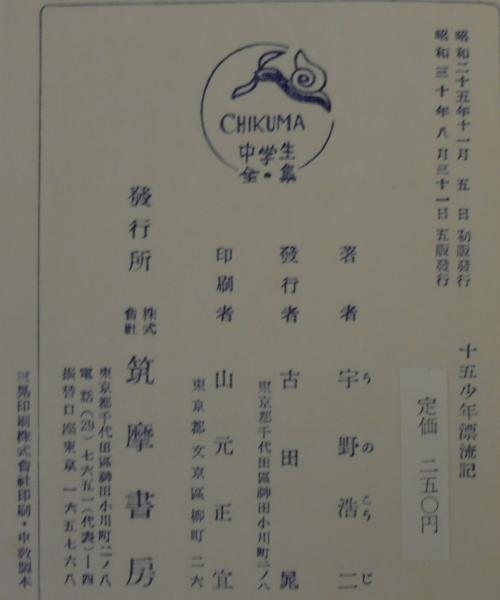 昭和二十五年十一月 五 日 初版發行
昭和三十年 八 月三十一日 五版發行
十五少年漂流記
定価 二五〇円
著者 宇野浩二
うのこうじ
發行者 古田晁
東京都千代田區神田小川町二ノ八
印刷者 山元正宜
東京都文京區柳町二六
發行所 株式會社 筑摩書房
東京都千代田區神田小川町二ノ八
電話(29)七六五一(代表)―四
振替口座東京一六五七六八
CHIKUMA
中学生
全・集
三晃印刷株式會社印刷・中敎製本